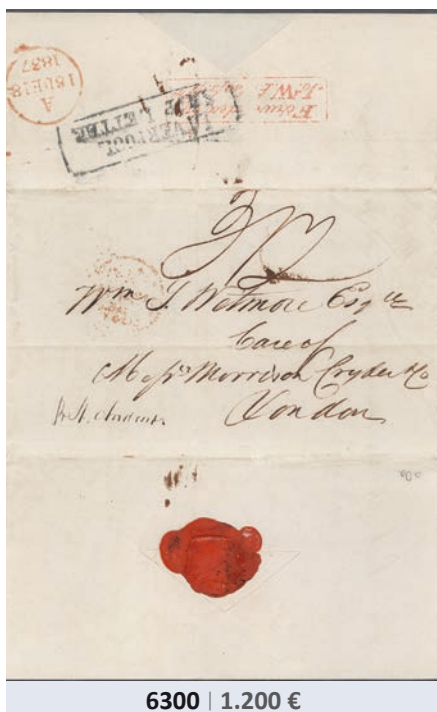 A
18DE18
1837
LIVERPOOL
SHIP LETTER
Wm S. Wetmore Esqre
Care of
Messrs Morrison Cryder & Co
London
6300 | 1.200 €